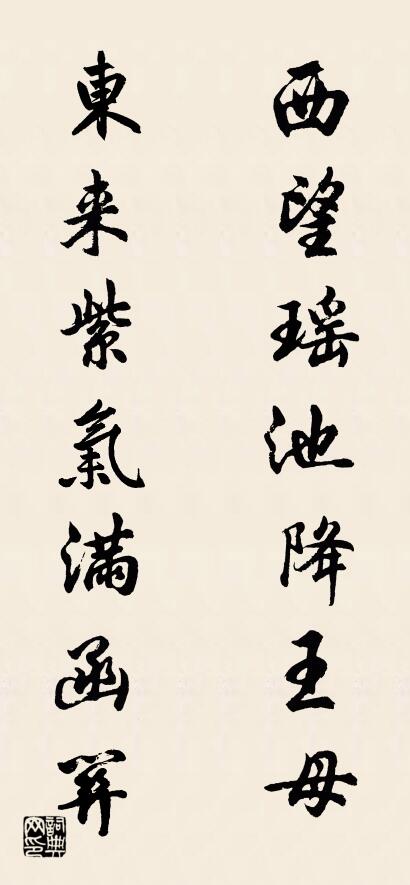 西望瑶池降王母
東来紫氣滿函関
詞典网印